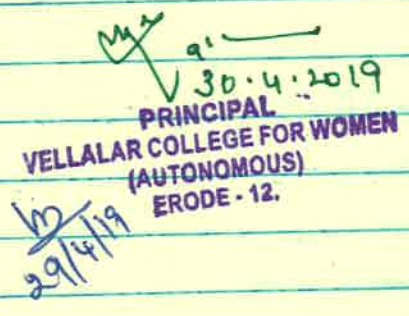 30.4.2019
PRINCIPAL
VELLALAR COLLEGE FOR WOMEN
(AUTONOMOUS)
ERODE - 12.
29/4/19